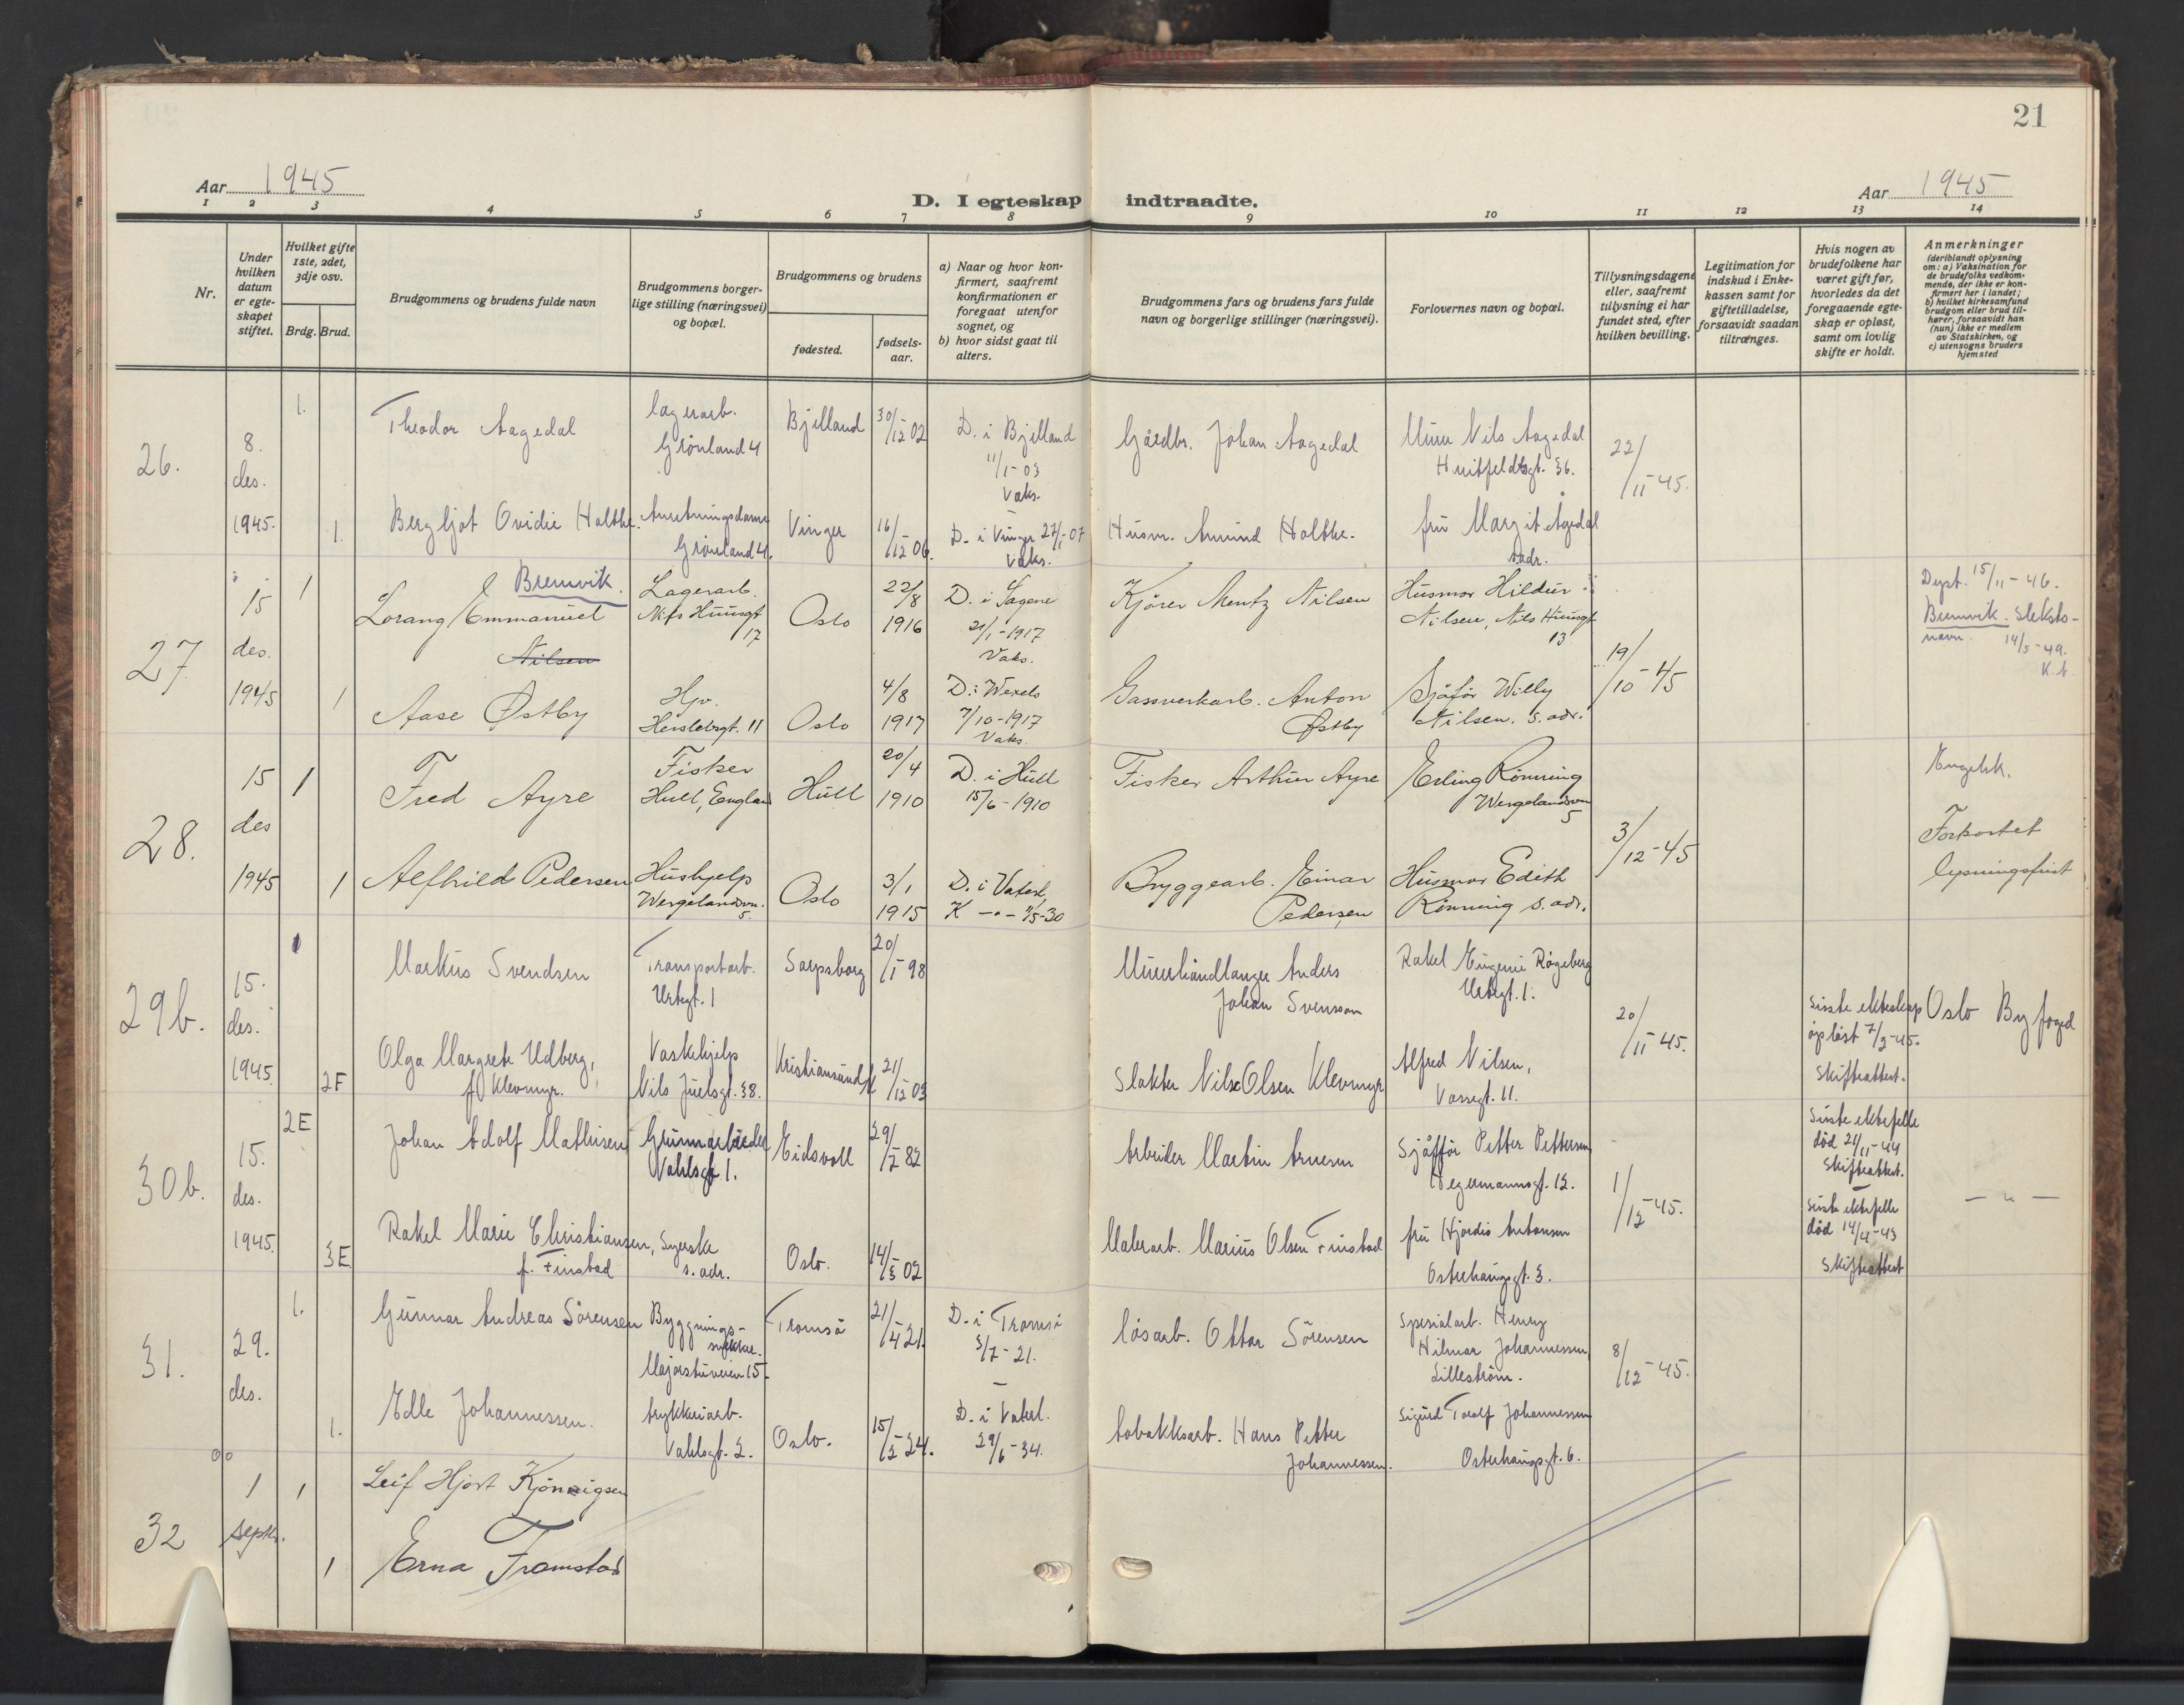 21
Aar 1945
D. I egteskap indtraadte.
Aar 1945
1 2 3 4 5 6 7 8 9 10 11 12 13 14
Nr.
Under hvilken datum er egteskapet stiftet.
Hvilket gifte 1ste, 2det, 3dje osv.
Brdg. Brud.
Brudgommens og brudens fulde navn
Brudgommens borgerlige stilling (næringsvei) og bopæl.
Brudgommens og brudens
fødested.
fødselsaar.
a) Naar og hvor konfirmert, saafremt konfirmationen er foregaat utenfor sognet, og
b) hvor sidst gaat til alters.
Brudgommens fars og brudens fars fulde navn og borgerlige stillinger (næringsvei).
Forlovernes navn og bopæl.
Tillysningsdagene eller, saafremt tillysning ei har fundet sted, efter hvilken bevilling.
Legitimation for indskud i Enkekassen samt for giftetilladelse, forsaavidt saadan tiltrænges.
Hvis nogen av brudefolkene har været gift før, hvorledes da det foregaaende egteskap er opløst, samt om lovlig skifte er holdt.
Anmerkninger
(deriblandt oplysning om: a) Vaksination for de brudefolks vedkommende, der ikke er konfirmert her i landet; b) hvilket kirkesamfund brudgom eller brud tilhører, forsaavidt han (hun) ikke er medlem av Statskirken, og c) utensogns bruders hjemsted
26.
8. des. 1945.
1.
Theodor Aagedal
lagerarb. Grønland 4
Bjelland
30/12 02
D. i Bjelland 11/1-03 Vaks.
Gårdbr. Johan Aagedal
Murer Nils Aagedal Huitfeldtsgt. 36.
22/11-45.
1.
Bergljot Ovidie Holthe.
Anretningsdame Grønland 4.
Vinger
16/12 06.
D. i Vinger 27/1-07 Vaks.
Husm. Amund Holthe.
fru Margit Agedal s.adr.
27
15 des. 1945
1
Lorang Emmanuel Bremvik. Nilsen
Lagerarb. Nils Huusgt 17
Oslo
22/8 1916
D. i Sagene 21/1-1917 Vaks.
Kjører Mentz Nilsen
Husmor Hildur Nilsen, Nils Huusgt 13
19/10-45
Dypt. 15/11-46. Bremvik. Slektsnavn. 14/5-49. K.A.
1
Aase Østby
Hpv. Herslebsgt. 11
Oslo
4/8 1917
D. i Wexels 7/10-1917 Vaks
Gassverkarb. Anton Østby
Sjåfør Willy Nilsen. s. adr.
28.
15 des 1945
1
Fred Ayre
Fisker Hull, England
Hull
20/4 1910
D. i Hull 15/6-1910
Fisker Arthur Ayre
Erling Rønning Wergelandsvn 5
3/12-45
Engelsk.
Forkortet lysningsfrist
1
Alfhild Pedersen
Hushjelp Wergelandsvn. 5
Oslo
3/1 1915
D. i Vaterl, K -"- 11/5-30
Bryggearb. Einar Pedersen
Husmor Edith Rønning s. adr.
29b.
15. des. 1945.
1
Markus Svendsen
Transportarb. Urtegt. 1
Sarpsborg
20/1 98
Murerhåndlanger Anders Johan Svensson
Rakel Eugenie Rågeberg Urtegt. 1.
20/11-45.
Siste ekteskap opløst 7/2-45. Skifteattest.
Oslo Byfoged
2F
Olga Margrete Udberg, f. Klevmyr.
Vaskehjelp Nils Juelsgt. 38.
Kristiansund N
21/12 03
Slakter Nils Olsen Klevmyr
Alfred Nilsen, Vossegt. 11.
30b.
15. des. 1945.
2E
Johan Adolf Mathisen
Grunnarbeider Vahlsgt 1.
Eidsvoll
29/7 82
Arbeider Martin Arnesen
Sjåffør Petter Pettersen Hegermannsgt. 12.
1/12-45.
Siste ektefelle død 21/11-44 Skifteattest.
- " -
3E
Rakel Marie Christiansen, f. Finstad
Syerske s. adr.
Oslo.
14/3 02
Malerarb. Marius Olsen Finstad
fru Hjørdis Antonsen Osterhausgt. 3.
Siste ektefelle død 14/4-43 Skifteattest
31.
29. des.
1.
Gunnar Andreas Sørensen
Bygningssnekker. Majorstuveien 15.
Tromsø
21/4 21.
D. i Tromsø 3/7-21.
løsarb. Ottar Sørensen
Spesialarb. Henry Hilmar Johannessen, Lillestrøm.
8/12-45.
1.
Edle Johannessen.
trykkeriarb. Vahlsgt. 2.
Oslo.
15/2 24.
D. i Vaterl. 29/6-34.
tobakksarb. Hans Petter Johannessen.
Sigurd Torolf Johannessen Osterhausgt. 6.
32
1 septr.
1
Leif Hjort Kjønnigsen
1
Erna Tromstad